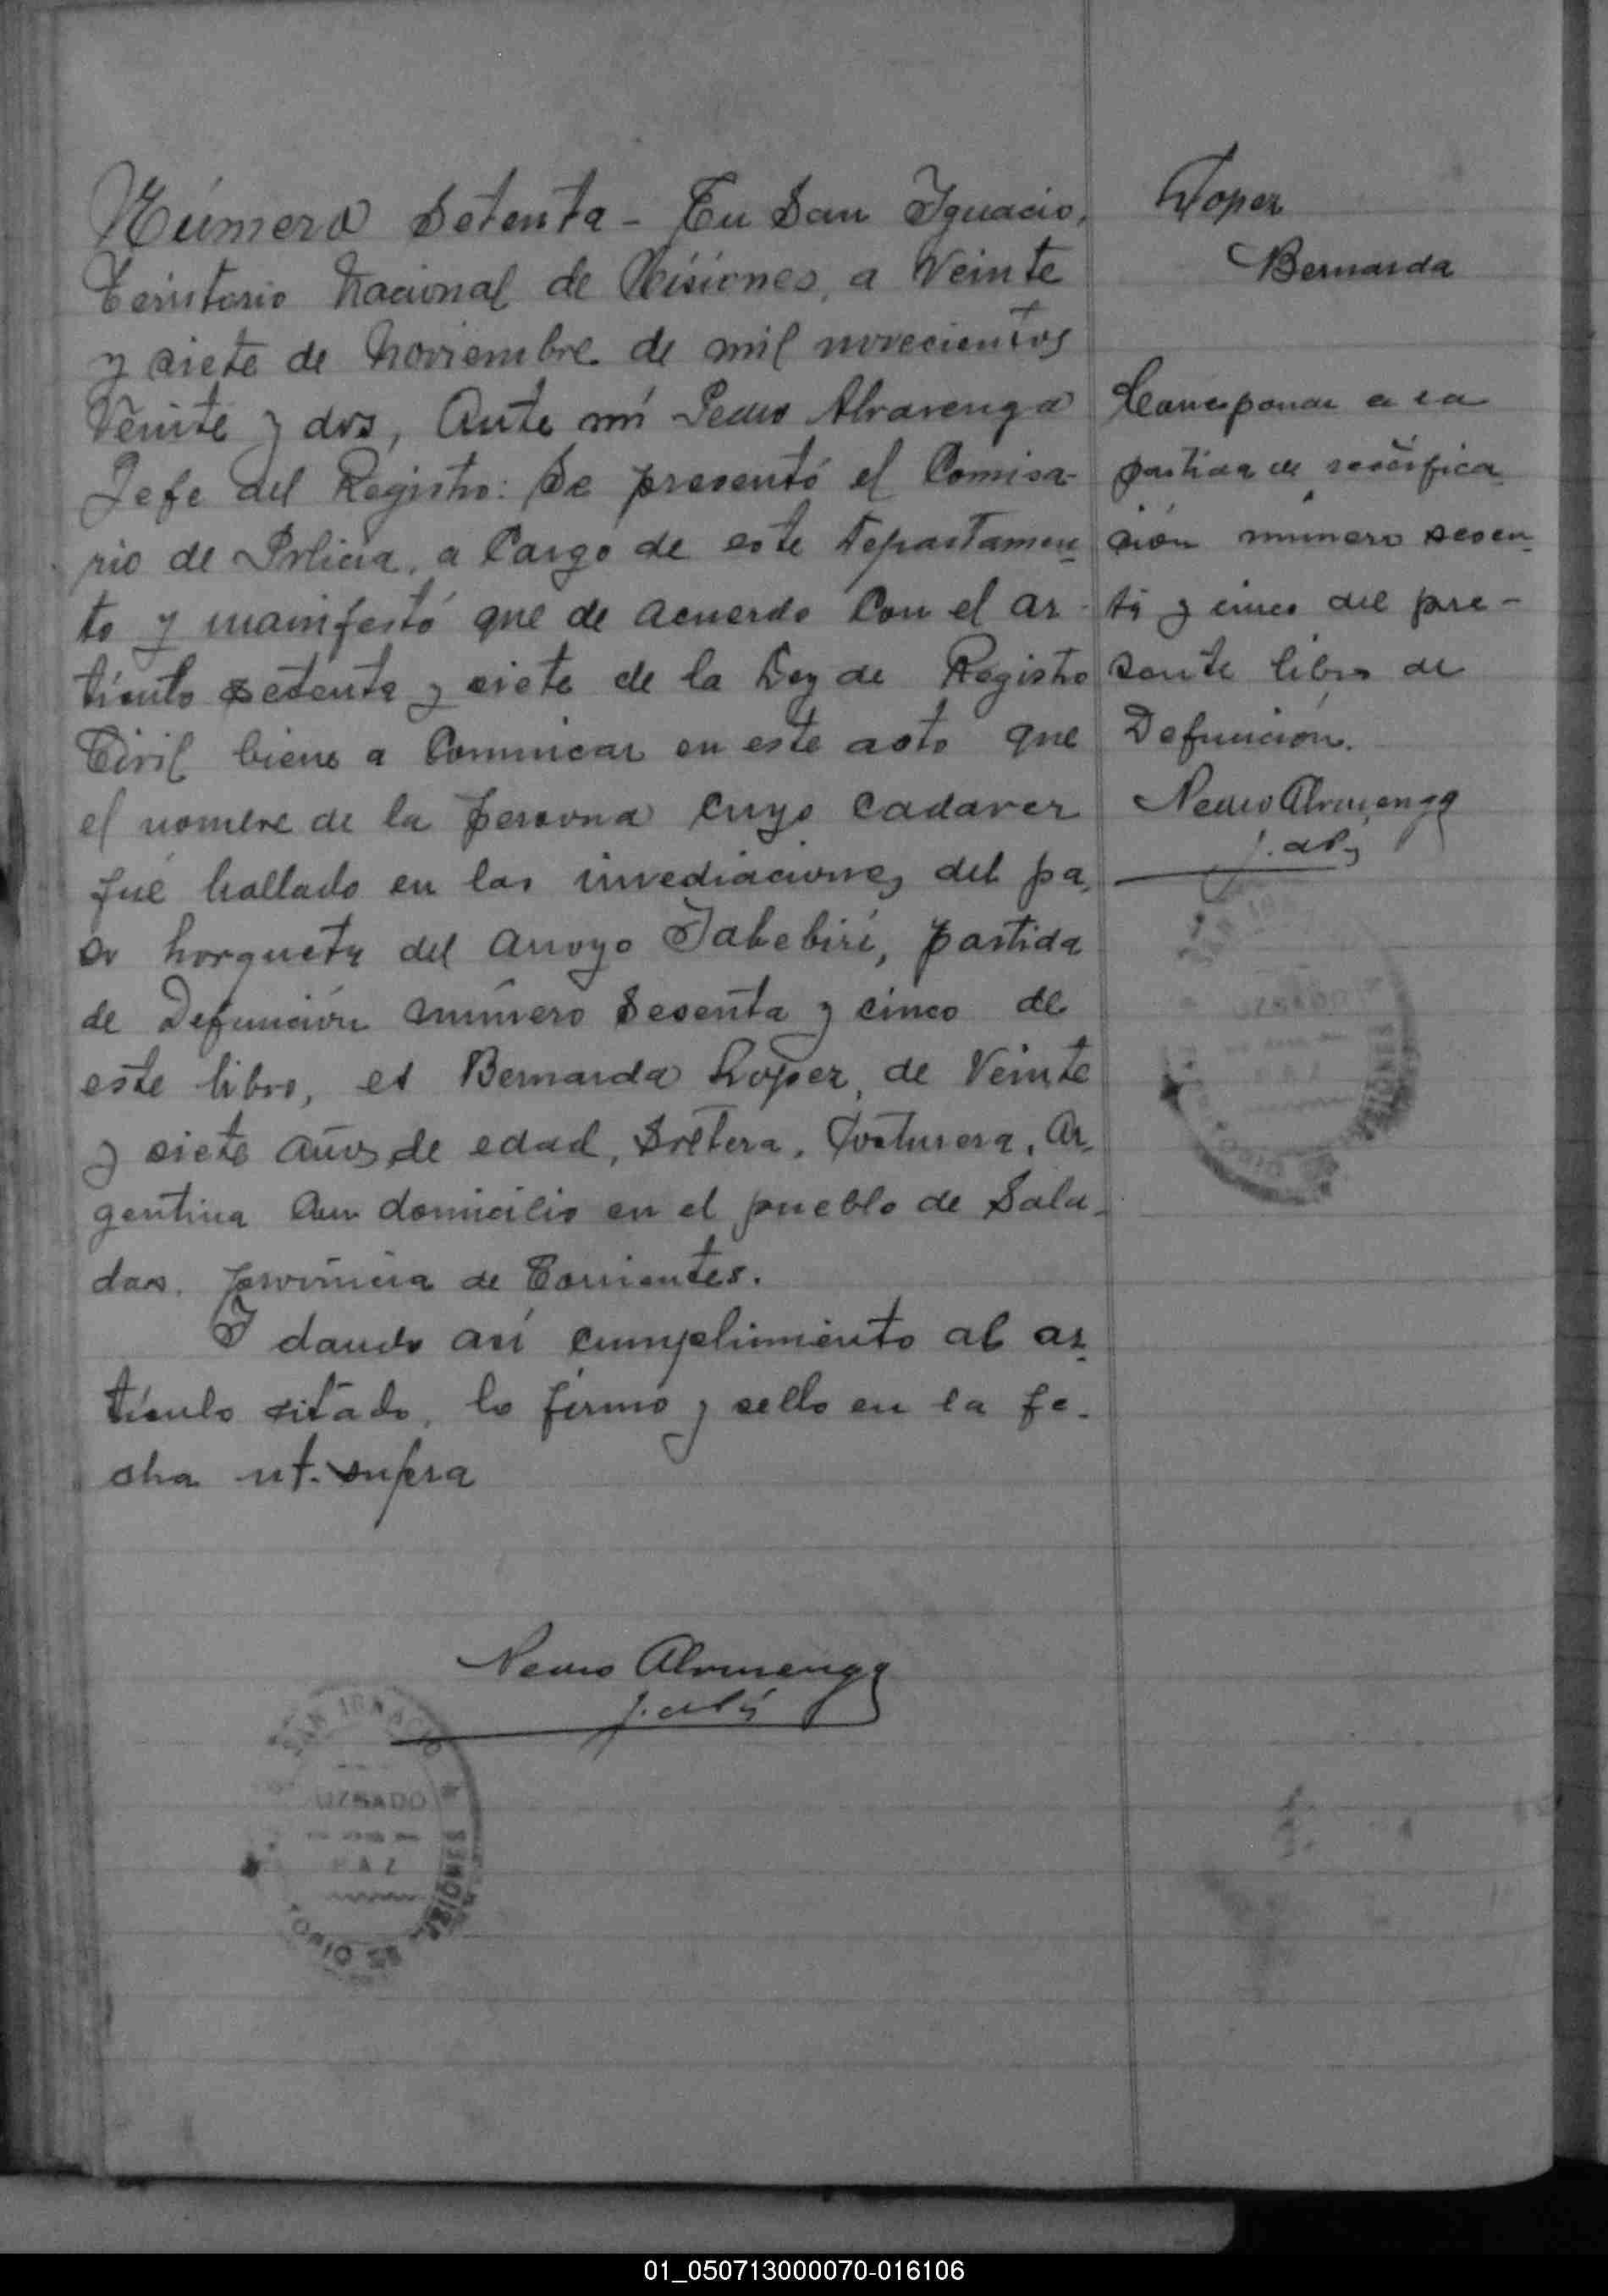 Número Setenta - En San Ignacio,
Territorio Nacional de Misiones, a Veinte
y siete de Noviembre de mil novecientos
Veinte y dos, Ante mí Pedro Alvarenga
Jefe del Registro: Se presentó el Comisa-
rio de Policia, a Cargo de este Departamen-
to y manifestó que de acuerdo Con el ar-
tículo setenta y siete de la Ley de Registro
Civil biene a Comunicar en este acto que
el nombre de la persona cuyo cadaver
fué hallado en las inmediaciones del pa-
so horqueta del arroyo Yabebirí, partida
de Defunción número Sesenta y cinco de
este libro, es Bernarda Lopez, de Veinte
y siete años de edad, Soltera, Costurera, Ar-
gentina Con domicilio en el pueblo de Sala-
das, provincia de Corrientes.
Y dando así cumplimiento al ar-
tículo citado, lo firmo y sello en la fe-
cha ut-supra
Pedro Alvarenga
SAN IGNACIO
UZGADO
PAZ
MISIONES
TORIO DE
Lopez
Bernarda
Corresponde a la
partida de
ción número sesen-
ta y cinco del pre-
sente libro de
Defunción.
Pedro Alvarenga
01_050713000070-016106